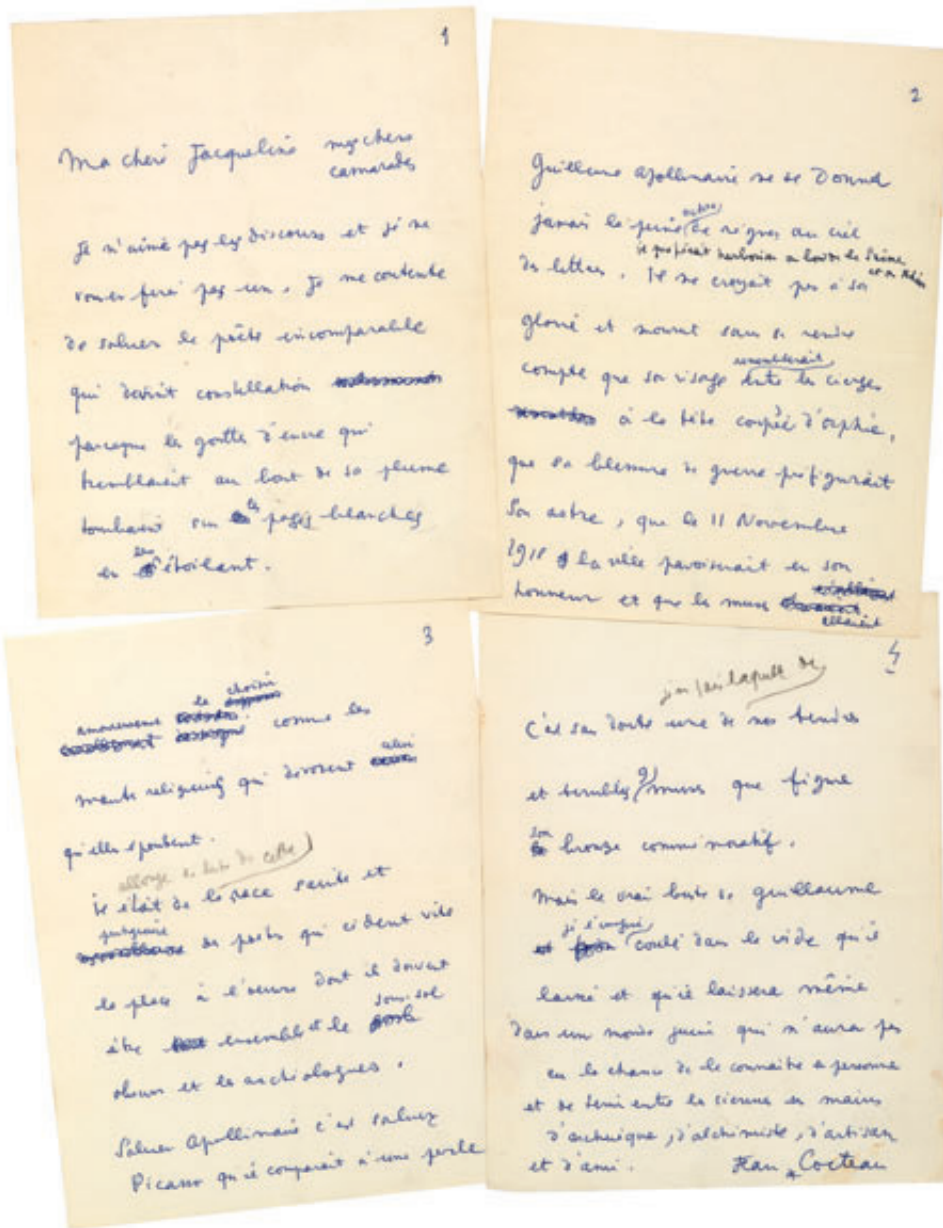 1
Ma chère Jacqueline mes chers
camarades
Je n'aime pas les discours et je ne
vous ferai pas un. Je me contente
de saluer le poète incomparable
qui devint constellation
parceque les gouttes d'encre qui
tremblaient au bout de sa plume
tombaient sur les pages blanches
en les étoilant.
2
Guillaume Apollinaire ne se donna
jamais le peine de régner au ciel
il préférait herboriser au bord de la Seine
et du Rhin
des lettres. Il ne croyait pas à sa
gloire et mourut sans se rendre
ressemblerait
compte que son visage entre les cierges
à la tête coupée d'Orphée,
que sa blessure de guerre préfigurait
son astre, que le 11 Novembre
1918 la ville pavoiserait en son
honneur et que les muses
allaient
3
amoureusement le choisi
comme les
mante religieuses qui dévorent celui
qu'elles épousent.
Il était de la race sainte et
de poètes qui cèdent vite
la place à l'oeuvre dont ils doivent
sous sol
être ensemble et le
obscur et les archéologues.
Saluer Apollinaire c'est saluer
Picasso qu'il comparait à une perle
4
C'est sans doute une de nos tendres
et terribles muses que figure
son
bronze commémoratif.
Mais le vrai buste de Guillaume
coulé dans le vide qu'il
laisse et qu'il laissera même
dans un monde qui n'aura pas
eu la chance de le connaître en personne
et de tenir entre les siennes ses mains
d'alchimiste, d'artisan
et d'ami. Jean Cocteau